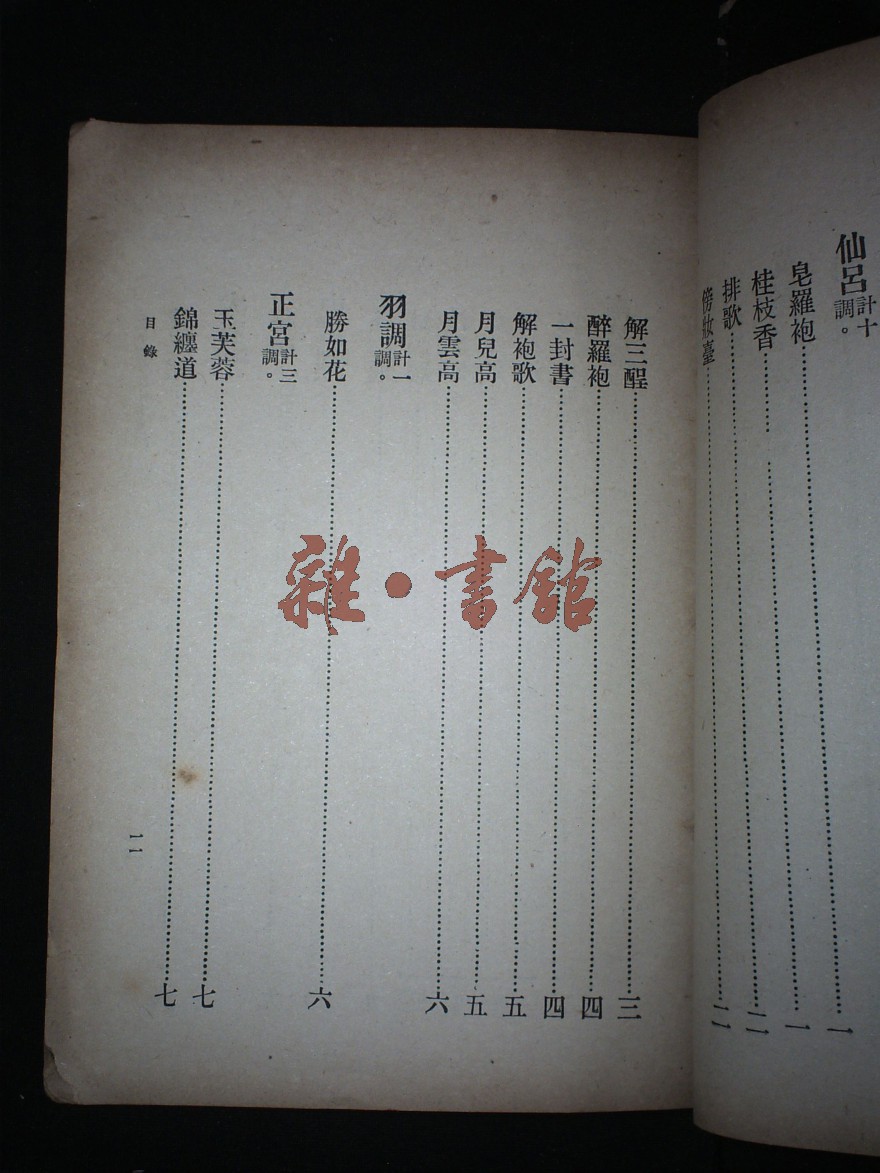 仙呂計十調。
皂羅袍……一
桂枝香……二
排歌……二
傍妝臺……二
解三酲……三
醉羅袍……四
一封書……四
解袍歌……五
月兒高……五
月雲高……六
羽調計一調。
勝如花……六
正宮計三調。
玉芙蓉……七
錦纏道……七
目錄
一一
雜·書館